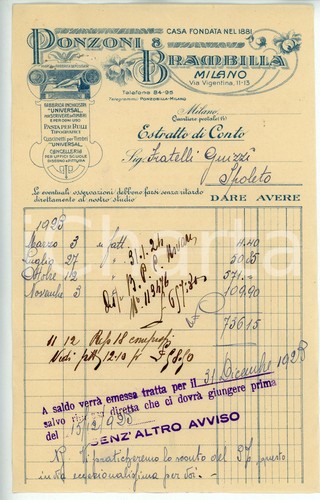 CASA FONDATA NEL 1881
PONZONI & BRAMBILLA
MILANO
Via Vigentina, 11-13
Telefono 84-95
Telegrammi: PONZOBILLA-MILANO
FABBRICA INCHIOSTRI
"UNIVERSAL"
PER SCRIVERE DA TIMBRI
E PER OGNI USO
PANIA PER RULLI
TIPOGRAFICI
CUSCINETTI PER TIMBRI
"UNIVERSAL"
CANCELLERIA
PER UFFICI SCUOLE
DISEGNO e PITTURA
Milano
(Quartiere postale 16)
Estratto di Conto
Sig. Fratelli Guzzi
Spoleto
Le eventuali osservazioni debbono farsi senza ritardo
direttamente al nostro studio
DARE AVERE
1923
Marzo 3 ns fatt. 4.40
Luglio 27 " 50.85
Ottobre 12 " 571.
Novembre 3 109.90
736.15
31-1-24
No. 113476
657.80
11 12
A saldo verrà emessa tratta per il 31 Dicembre 1923
salvo rimessa diretta che ci dovrà giungere prima
del 15/12/923
SENZ'ALTRO AVVISO
Vi praticheremo lo sconto del 3% questo
in via eccezionalissima per Voi.-